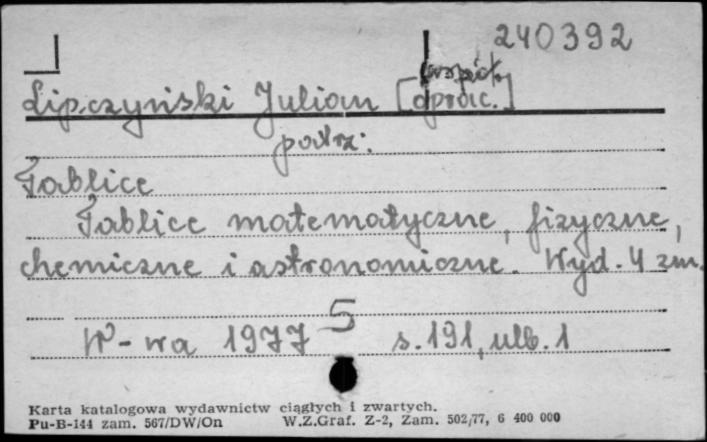 240392
współ
Lipczyński Julian [oprac.]
patrz:
Tablice
Tablice matematyczne, fizyczne,
chemiczne i astronomiczne. Wyd. 4 zm.
5
W-wa 1977 s. 191, ulb. 1
Karta katalogowa wydawnictw ciągłych i zwartych.
Pu-B-144 zam. 567/DW/On W.Z.Graf. Z-2, Zam. 502/77, 6 400 000